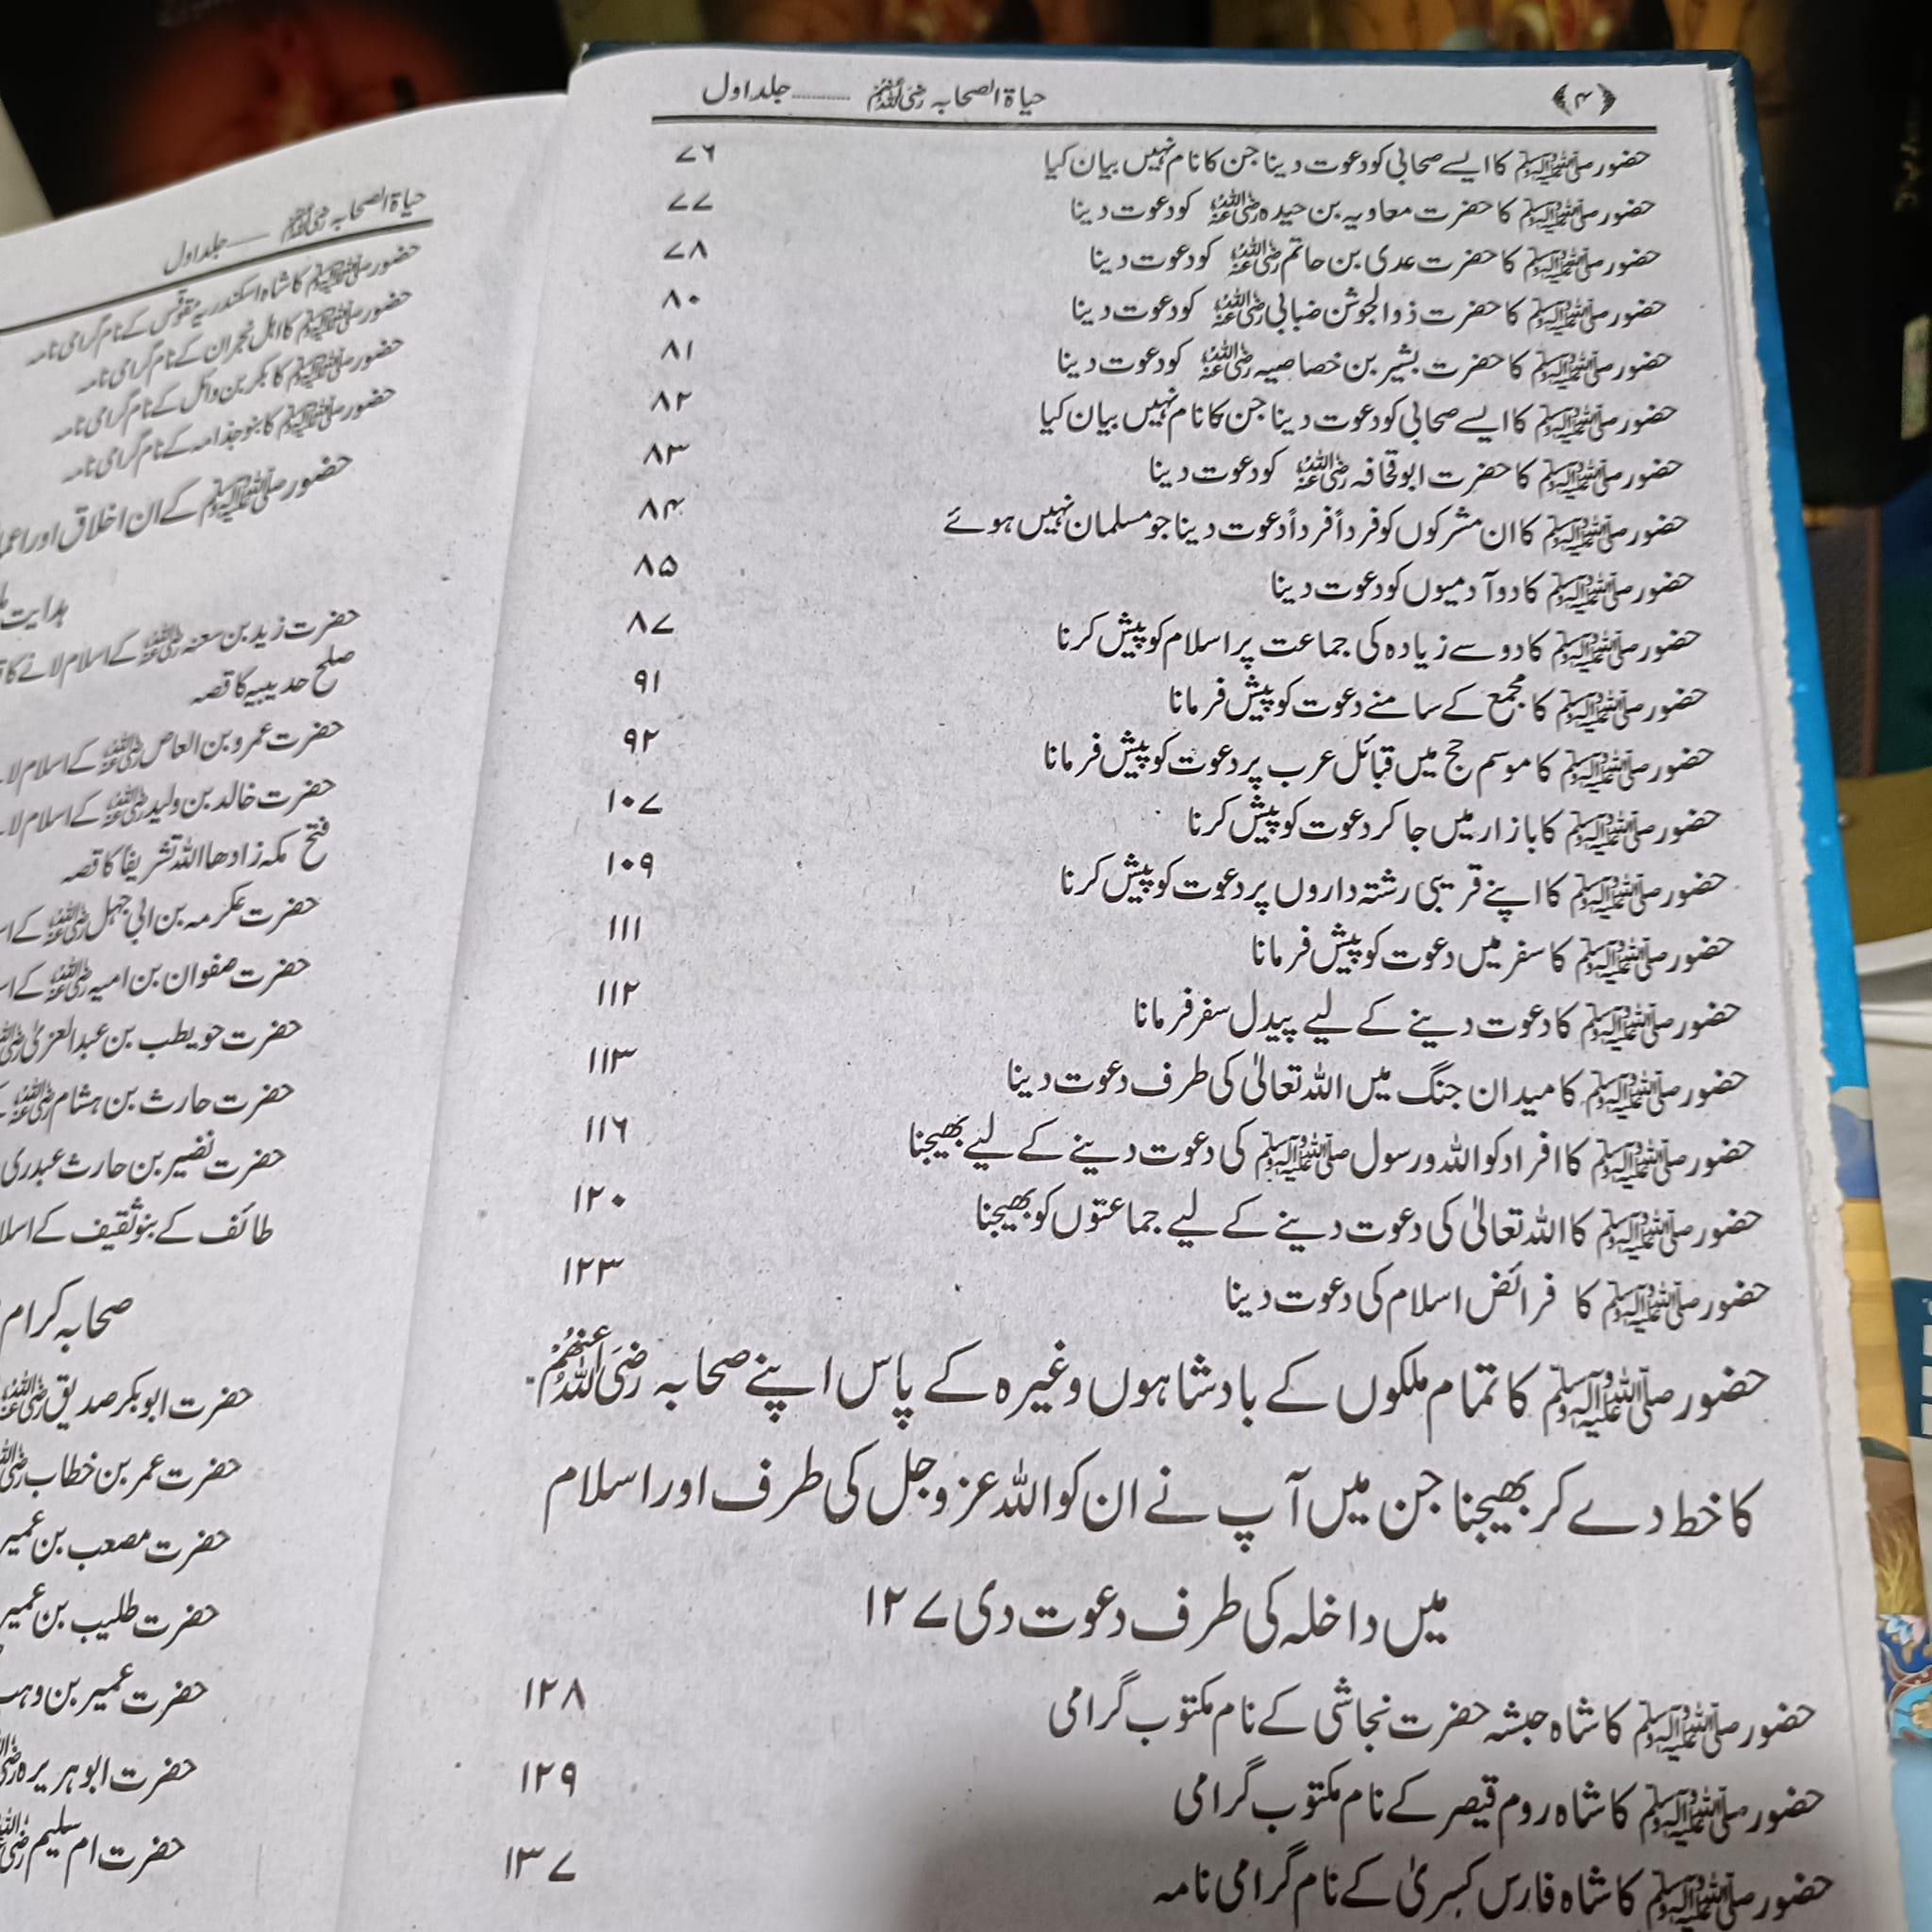 ﴿۴﴾ حیاۃ الصحابہ رضی اللہ عنہم ........... جلد اول
حضور صلی اللہ علیہ وسلم کا ایسے صحابی کو دعوت دینا جن کا نام نہیں بیان کیا ۷۶
حضور صلی اللہ علیہ وسلم کا حضرت معاویہ بن حیدہ رضی اللہ عنہ کو دعوت دینا ۷۷
حضور صلی اللہ علیہ وسلم کا حضرت عدی بن حاتم رضی اللہ عنہ کو دعوت دینا ۷۸
حضور صلی اللہ علیہ وسلم کا حضرت ذوالجوشن ضبابی رضی اللہ عنہ کو دعوت دینا ۸۰
حضور صلی اللہ علیہ وسلم کا حضرت بشیر بن خصاصیہ رضی اللہ عنہ کو دعوت دینا ۸۱
حضور صلی اللہ علیہ وسلم کا ایسے صحابی کو دعوت دینا جن کا نام نہیں بیان کیا ۸۲
حضور صلی اللہ علیہ وسلم کا حضرت ابوقحافہ رضی اللہ عنہ کو دعوت دینا ۸۳
حضور صلی اللہ علیہ وسلم کا ان مشرکوں کو فرداً فرداً دعوت دینا جو مسلمان نہیں ہوئے ۸۴
حضور صلی اللہ علیہ وسلم کا دو آدمیوں کو دعوت دینا ۸۵
حضور صلی اللہ علیہ وسلم کا دو سے زیادہ کی جماعت پر اسلام کو پیش کرنا ۸۷
حضور صلی اللہ علیہ وسلم کا مجمع کے سامنے دعوت کو پیش فرمانا ۹۱
حضور صلی اللہ علیہ وسلم کا موسم حج میں قبائل عرب پر دعوت کو پیش فرمانا ۹۲
حضور صلی اللہ علیہ وسلم کا بازار میں جا کر دعوت کو پیش کرنا ۱۰۷
حضور صلی اللہ علیہ وسلم کا اپنے قریبی رشتہ داروں پر دعوت کو پیش کرنا ۱۰۹
حضور صلی اللہ علیہ وسلم کا سفر میں دعوت کو پیش فرمانا ۱۱۱
حضور صلی اللہ علیہ وسلم کا دعوت دینے کے لیے پیدل سفر فرمانا ۱۱۲
حضور صلی اللہ علیہ وسلم کا میدان جنگ میں اللہ تعالیٰ کی طرف دعوت دینا ۱۱۳
حضور صلی اللہ علیہ وسلم کا افراد کو اللہ و رسول صلی اللہ علیہ وسلم کی دعوت دینے کے لیے بھیجنا ۱۱۶
حضور صلی اللہ علیہ وسلم کا اللہ تعالیٰ کی دعوت دینے کے لیے جماعتوں کو بھیجنا ۱۲۰
حضور صلی اللہ علیہ وسلم کا فرائض اسلام کی دعوت دینا ۱۲۳
حضور صلی اللہ علیہ وسلم کا تمام ملکوں کے بادشاہوں وغیرہ کے پاس اپنے صحابہ رضی اللہ عنہم
کا خط دے کر بھیجنا جن میں آپ نے ان کو اللہ عزوجل کی طرف اور اسلام
میں داخلہ کی طرف دعوت دی ۱۲۷
حضور صلی اللہ علیہ وسلم کا شاہ حبشہ حضرت نجاشی کے نام مکتوب گرامی ۱۲۸
حضور صلی اللہ علیہ وسلم کا شاہ روم قیصر کے نام مکتوب گرامی ۱۲۹
حضور صلی اللہ علیہ وسلم کا شاہ فارس کسریٰ کے نام گرامی نامہ ۱۳۷
حیاۃ الصحابہ رضی اللہ عنہم ...... جلد اول
حضور صلی اللہ علیہ وسلم کا شاہ اسکندریہ مقوقس کے نام گرامی نامہ
حضور صلی اللہ علیہ وسلم کا اہل نجران کے نام گرامی نامہ
حضور صلی اللہ علیہ وسلم کا بکر بن وائل کے نام گرامی نامہ
حضور صلی اللہ علیہ وسلم کا بنو جذامہ کے نام گرامی نامہ
حضور صلی اللہ علیہ وسلم کے ان اخلاق اور
ہدایت
حضرت زید بن سعنہ رضی اللہ عنہ کے اسلام لانے کا
صلح حدیبیہ کا قصہ
حضرت عمرو بن العاص رضی اللہ عنہ کے اسلام
حضرت خالد بن ولید رضی اللہ عنہ کے اسلام
فتح مکہ زادھا اللہ تشریفاً کا قصہ
حضرت عکرمہ بن ابی جہل رضی اللہ عنہ کے
حضرت صفوان بن امیہ رضی اللہ عنہ کے
حضرت حویطب بن عبدالعزیٰ
حضرت حارث بن ہشام رضی اللہ عنہ
حضرت نضیر بن حارث عبدری
طائف کے بنو ثقیف کے
صحابہ کرام
حضرت ابوبکر صدیق رضی اللہ عنہ
حضرت عمر بن خطاب
حضرت مصعب بن عمیر
حضرت طلیب بن عمیر
حضرت عمیر بن وہب
حضرت ابو ہریرہ
حضرت ام سلیم